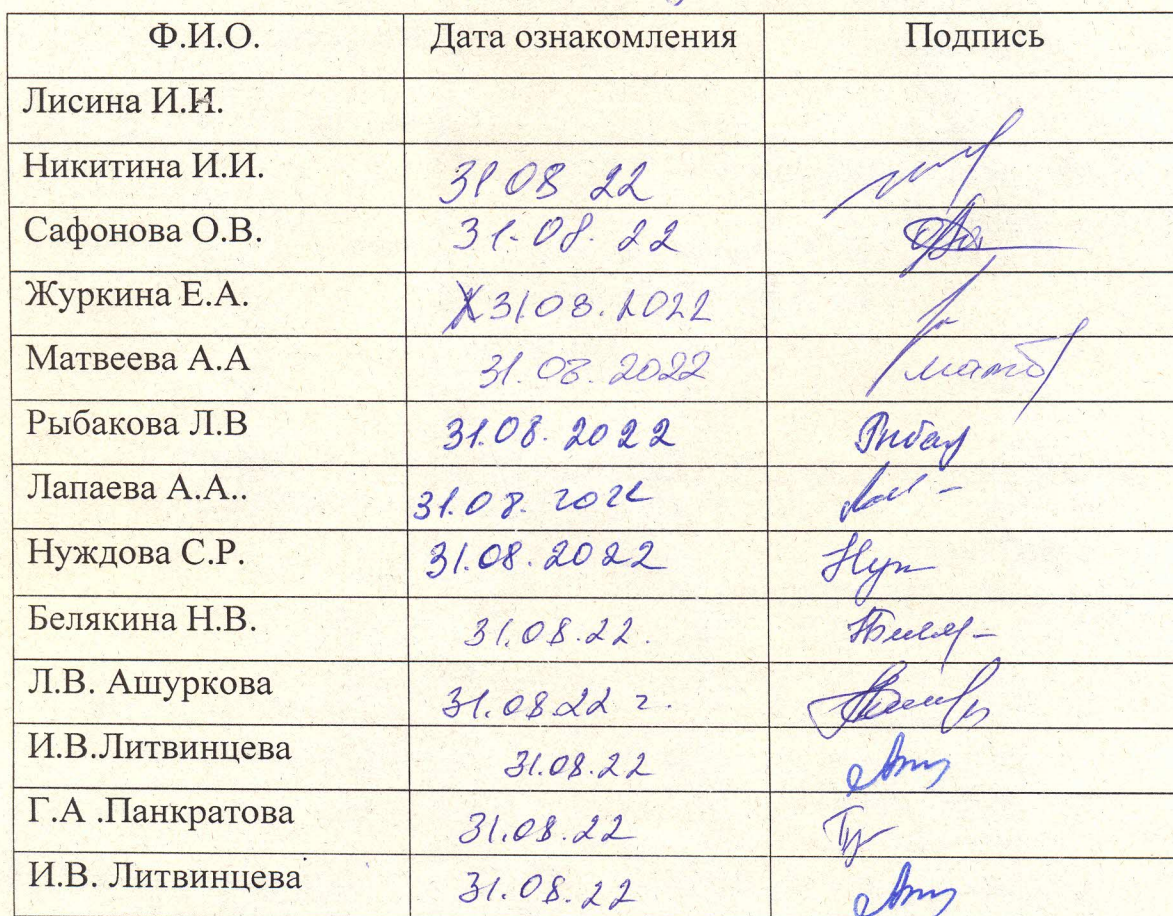 Ф.И.О. Дата ознакомления Подпись
Лисина И.И.
Никитина И.И. 31 08 22
Сафонова О.В. 31.08.22
Журкина Е.А. 31 08.2022
Матвеева А.А 31.08.2022 Матв
Рыбакова Л.В 31.08.2022 Рыбак
Лапаева А.А.. 31.08.2022
Нуждова С.Р. 31.08.2022 Нуж
Белякина Н.В. 31.08.22.
Л.В. Ашуркова 31.08.22 г.
И.В.Литвинцева 31.08.22
Г.А .Панкратова 31.08.22
И.В. Литвинцева 31.08.22